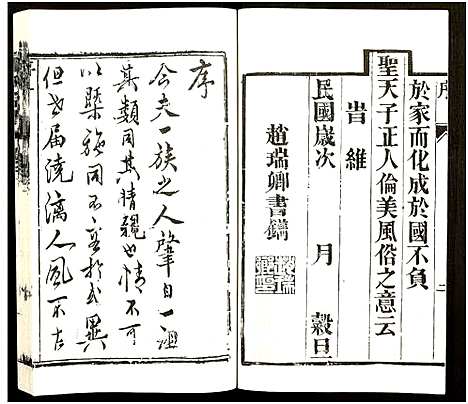 於家而化成於國不負
聖天子正人倫美風俗之意云
旹維
民國歲次　月　穀日
趙瑞卿書鐫
序
今夫一族之人肇自一祖
其類同其情親也情不可
以槩施同不
但世届澆漓人風不古